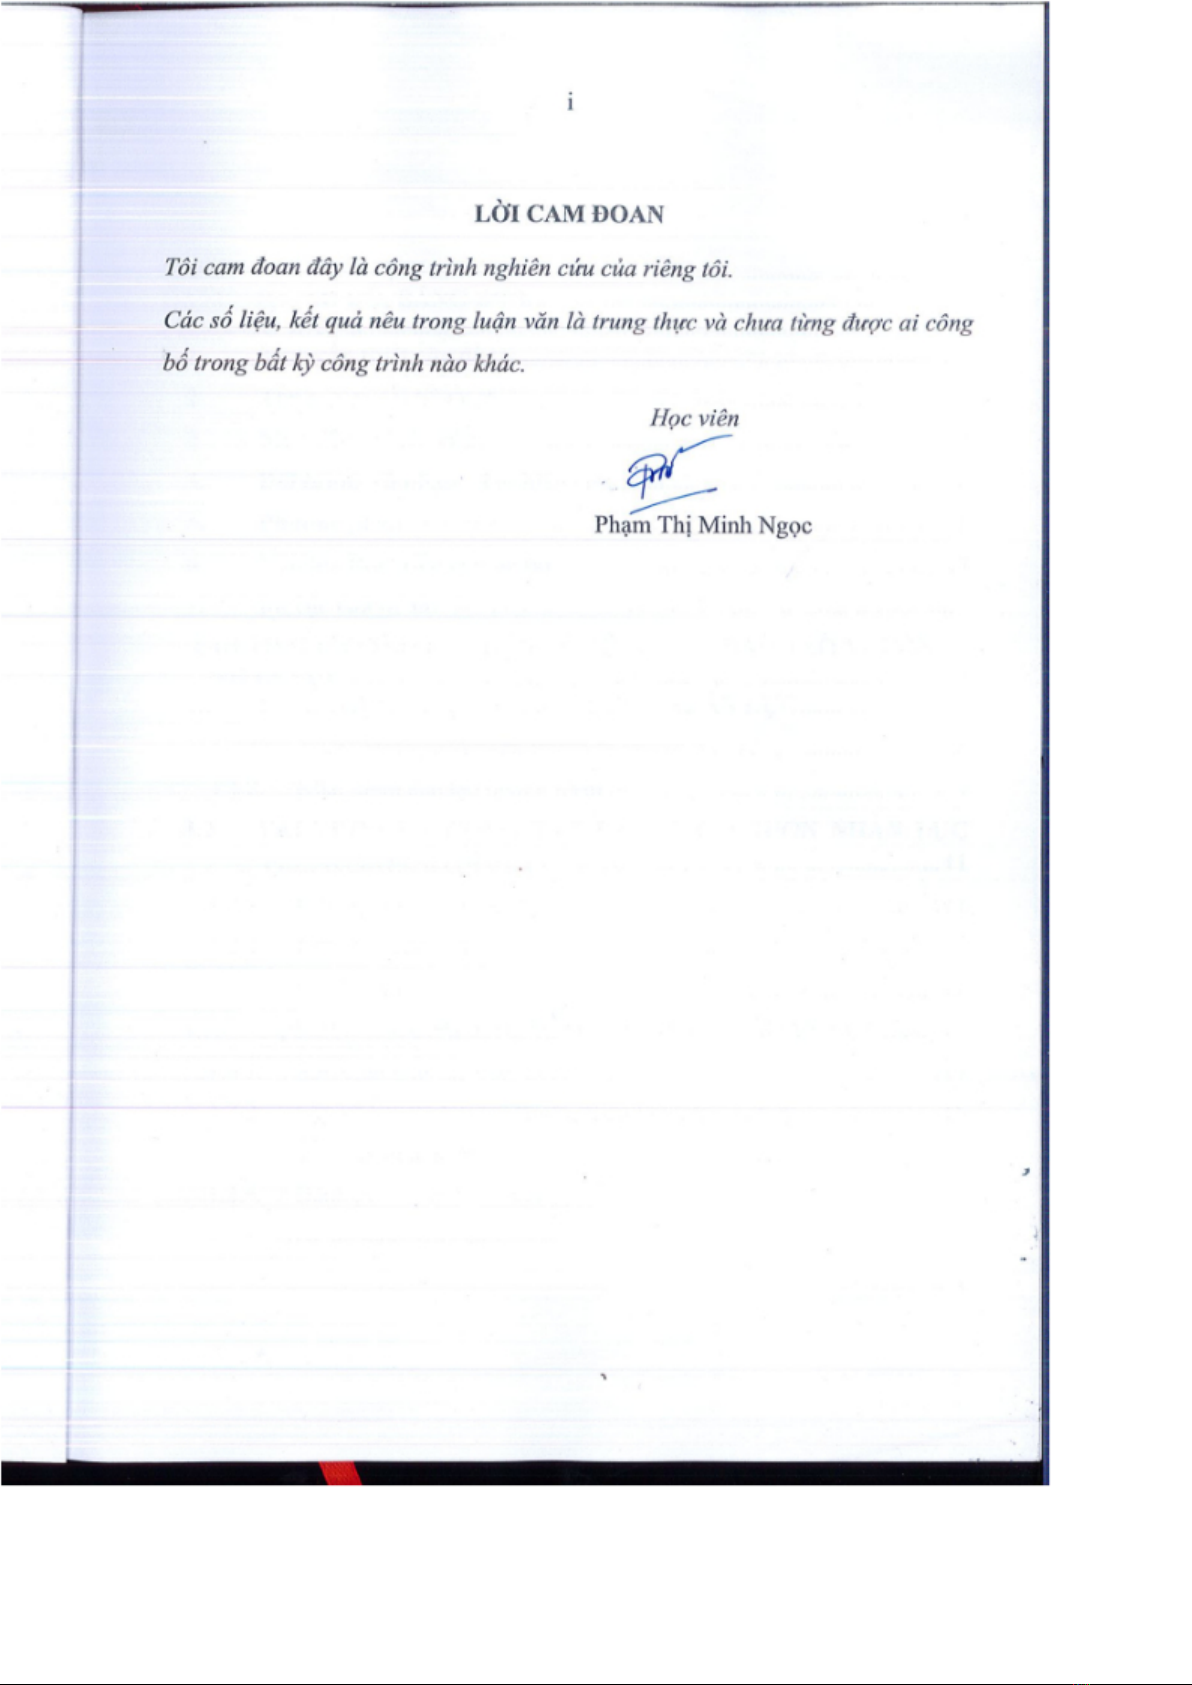 i
LỜI CAM ĐOAN
Tôi cam đoan đây là công trình nghiên cứu của riêng tôi.
Các số liệu, kết quả nêu trong luận văn là trung thực và chưa từng được ai công
bố trong bất kỳ công trình nào khác.
Học viên
Phạm Thị Minh Ngọc